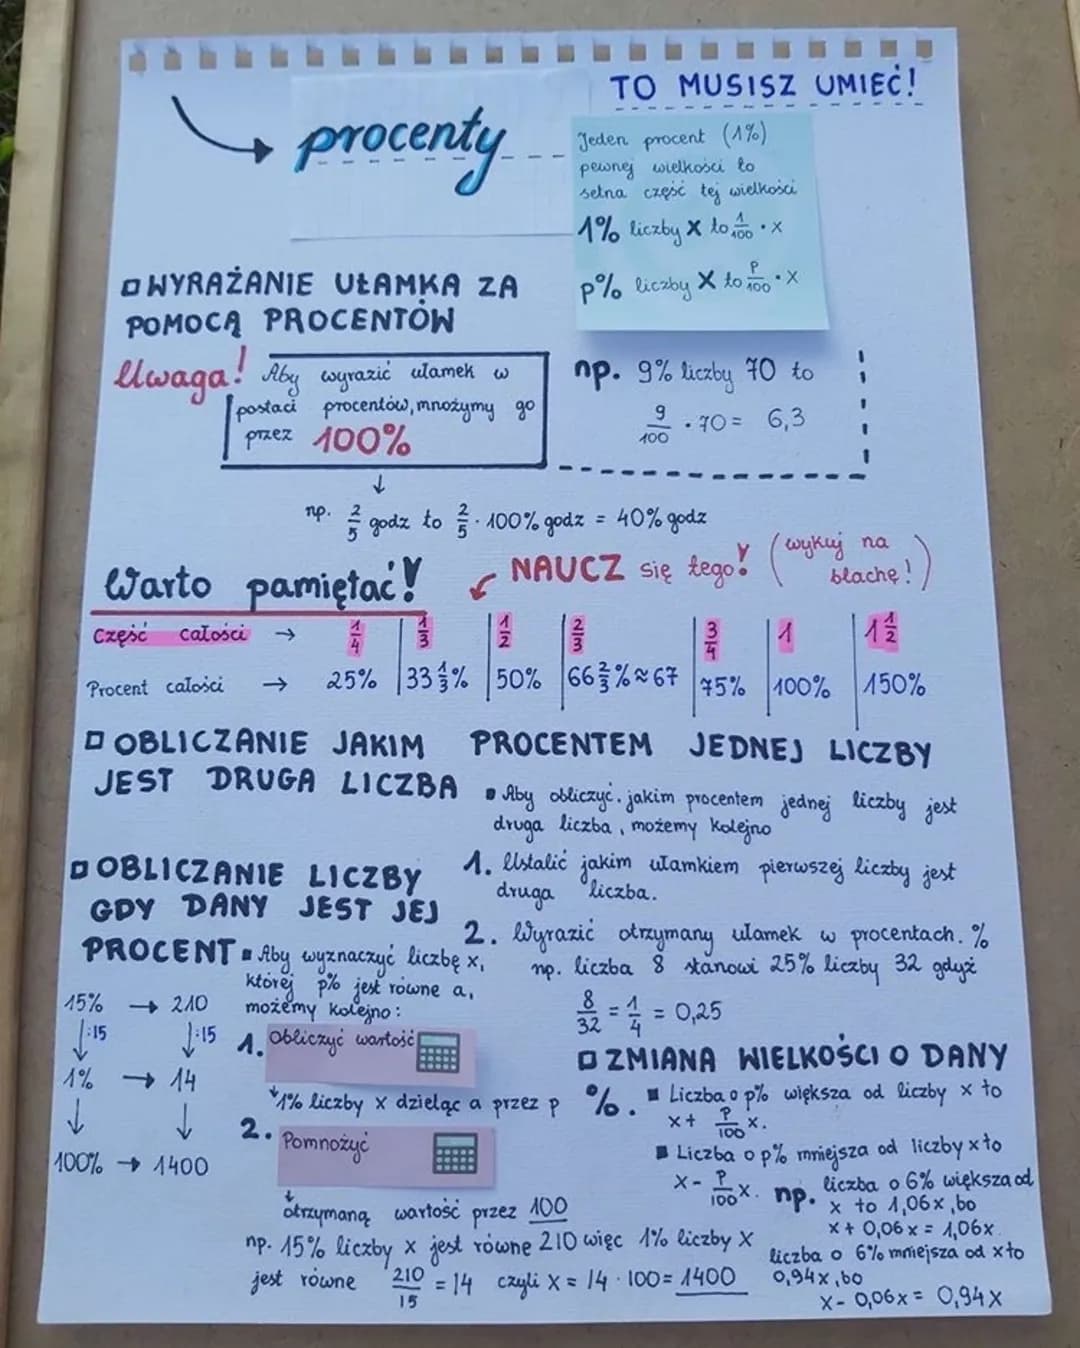 TO MUSISZ UMIEĆ!
procenty
Jeden procent (1%)
pewnej wielkości to
setna część tej wielkości
1% liczby x to 1/100 · x
p% liczby x to p/100 · x
WYRAŻANIE UŁAMKA ZA
POMOCĄ PROCENTÓW
Uwaga! Aby wyrazić ułamek w
postaci procentów, mnożymy go
przez 100%
np. 9% liczby 70 to
9/100 · 70 = 6,3
↓
np. 2/5 godz to 2/5 · 100% godz = 40% godz
Warto pamiętać!
NAUCZ się tego! (wykuj na
blachę!)
Część całości → 1/4 | 1/3 | 1/2 | 2/3 | 3/4 | 1 | 1 1/2
Procent całości → 25% | 33 1/3% | 50% | 66 2/3% ≈ 67 | 75% | 100% | 150%
OBLICZANIE JAKIM PROCENTEM JEDNEJ LICZBY
JEST DRUGA LICZBA
Aby obliczyć. jakim procentem jednej liczby jest
druga liczba, możemy kolejno
1. Ustalić jakim ułamkiem pierwszej liczby jest
druga liczba.
2. Wyrazić otrzymany ułamek w procentach. %
np. liczba 8 stanowi 25% liczby 32 gdyż
8/32 = 1/4 = 0,25
OBLICZANIE LICZBY
GDY DANY JEST JEJ
PROCENT
Aby wyznaczyć liczbę x,
której p% jest równe a,
możemy kolejno:
15% → 210
↓ :15 ↓ :15
1% → 14
↓ ↓
100% → 1400
1. Obliczyć wartość
1% liczby x dzieląc a przez p
2. Pomnożyć
otrzymaną wartość przez 100
np. 15% liczby x jest równe 210 więc 1% liczby x
jest równe 210/15 = 14 czyli x = 14 · 100 = 1400
ZMIANA WIELKOŚCI O DANY
%.
Liczba o p% większa od liczby x to
x + p/100 x.
Liczba o p% mniejsza od liczby x to
x - p/100 x.
np. liczba o 6% większa od
x to 1,06x, bo
x + 0,06x = 1,06x
liczba o 6% mniejsza od x to
0,94x, bo
x - 0,06x = 0,94x